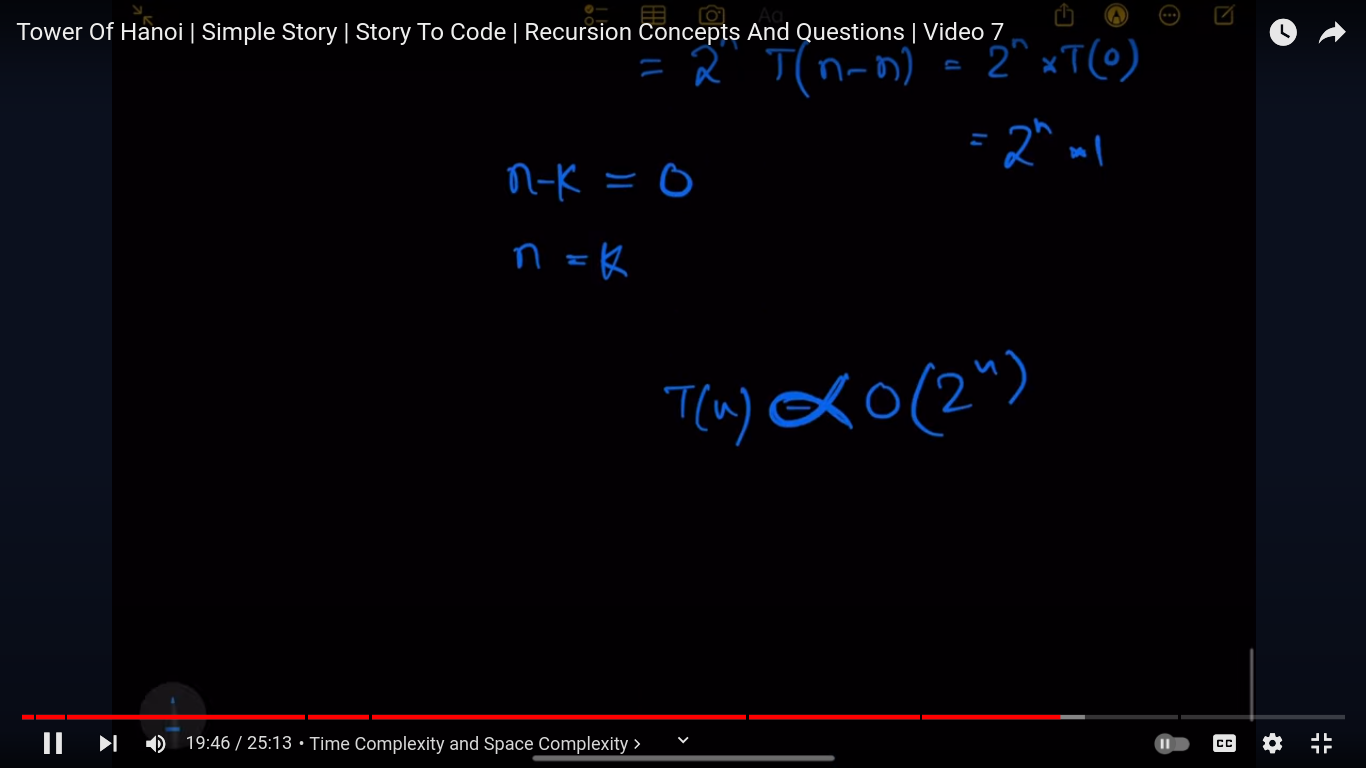 Tower Of Hanoi | Simple Story | Story To Code | Recursion Concepts And Questions | Video 7
Aa
= 2ⁿ T(n-n) = 2ⁿ × T(0)
= 2ⁿ × 1
n-k = 0
n = k
T(n) ∝ O(2ⁿ)
19:46 / 25:13 • Time Complexity and Space Complexity >
CC